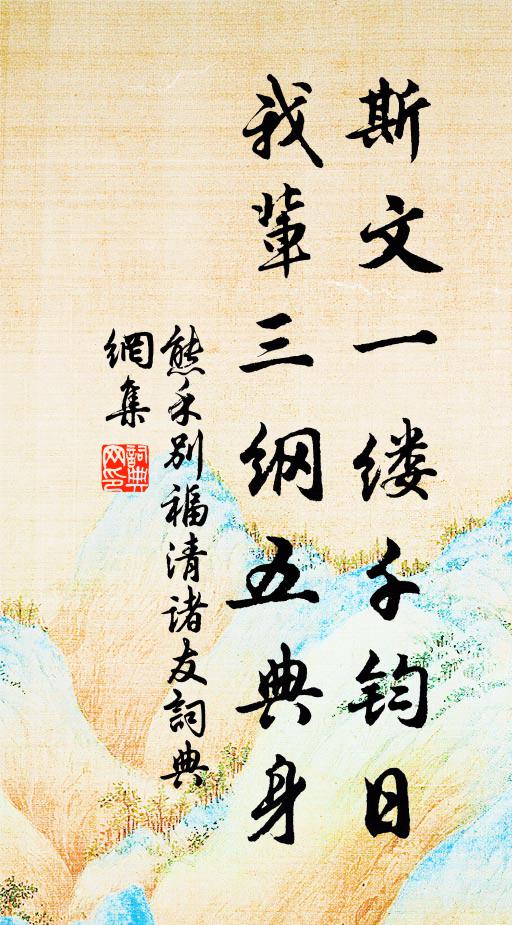 斯文一缕千钧日
我輩三纲五典身
熊禾别福清诸友詞典
網集
詞典网印